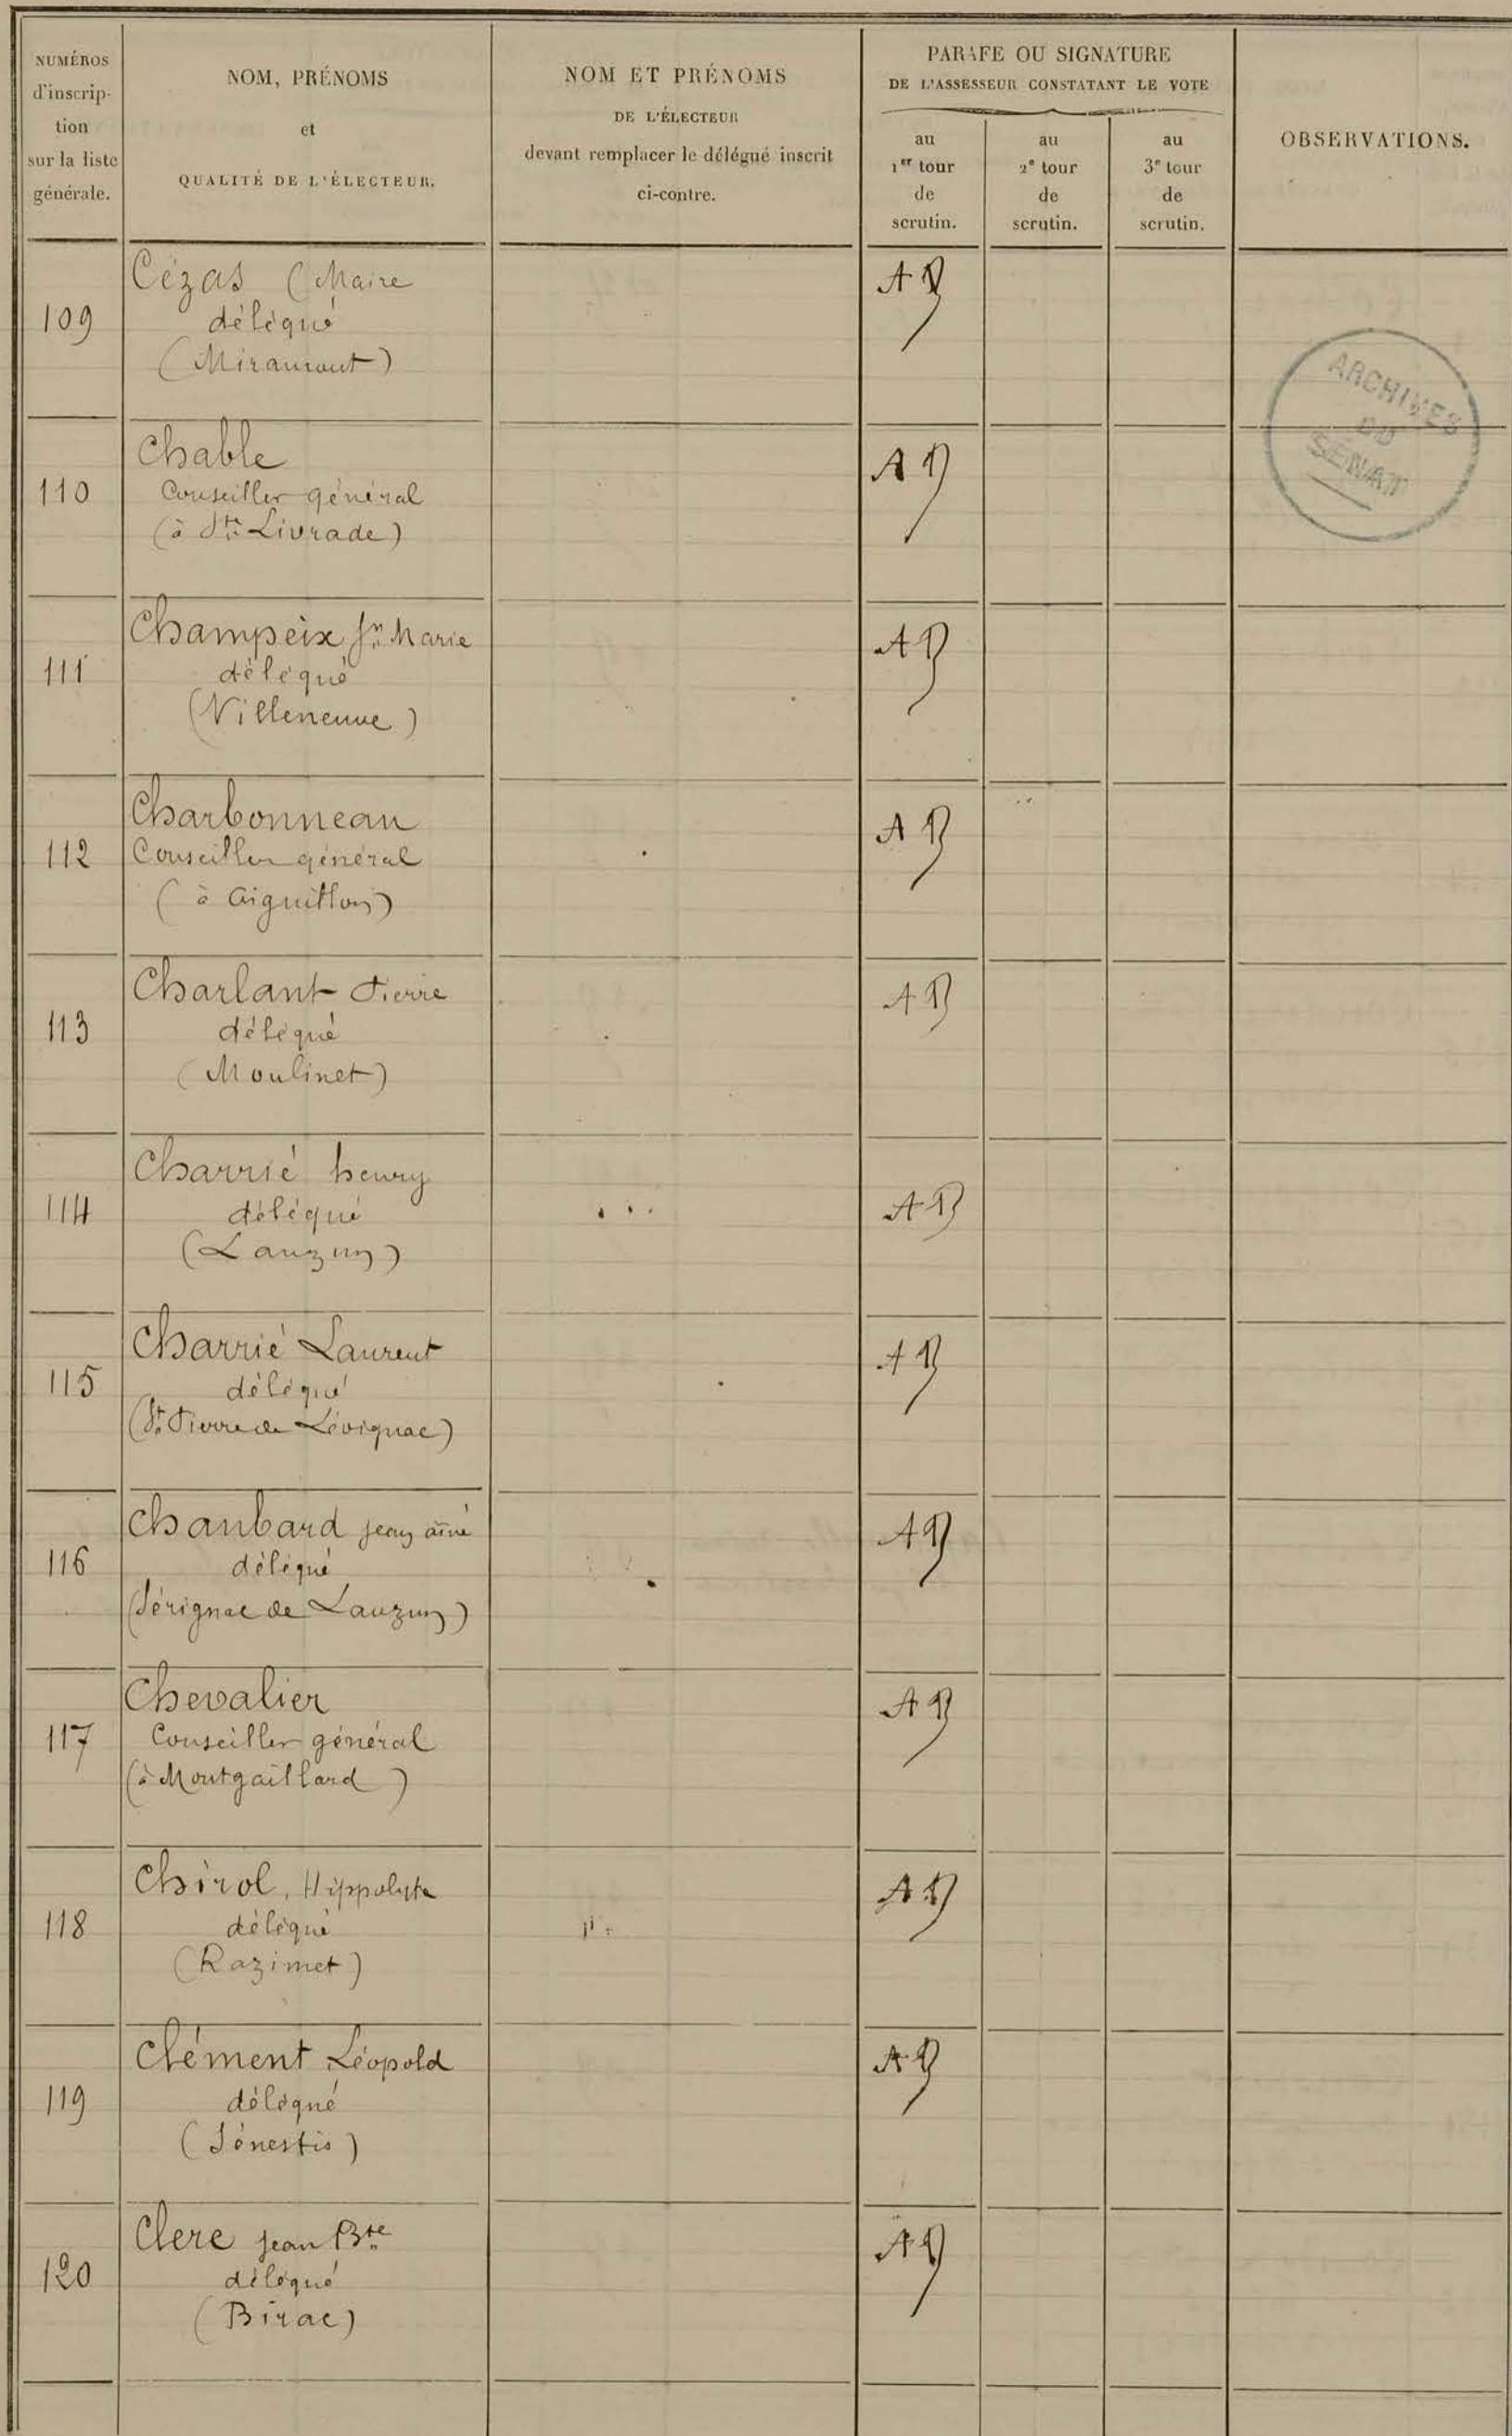 NUMÉROS
d'inscrip-
tion
sur la liste
générale.
NOM, PRÉNOMS
et
QUALITÉ DE L'ÉLECTEUR.
NOM ET PRÉNOMS
DE L'ÉLECTEUR
devant remplacer le délégué inscrit
ci-contre.
PARAFE OU SIGNATURE
DE L'ASSESSEUR CONSTATANT LE VOTE
au
1er tour
de
scrutin.
au
2e tour
de
scrutin.
au
3e tour
de
scrutin.
OBSERVATIONS.
109
Cézas (Maire
délégué
(Miramont)
ARCHIVES
DU
SÉNAT
110
Chable
Conseiller général
(à Ste Livrade)
111
Champeix Jn Marie
délégué
(Villeneuve)
112
Charbonneau
Conseiller général
(à Aiguillon)
113
Charlant Pierre
délégué
(Moulinet)
114
Charrié henry
délégué
(Lauzun)
115
Charrié Laurent
délégué
(St Pierre de Lévignac)
116
Chaubard jean aîné
délégué
(Sérignac de Lauzun)
117
Chevalier
Conseiller général
(à Montgaillard)
118
Chirol, Hippolyte
délégué
(Razimet)
119
Clément Léopold
délégué
(Sénestis)
120
Clerc jean Bte
délégué
(Birac)